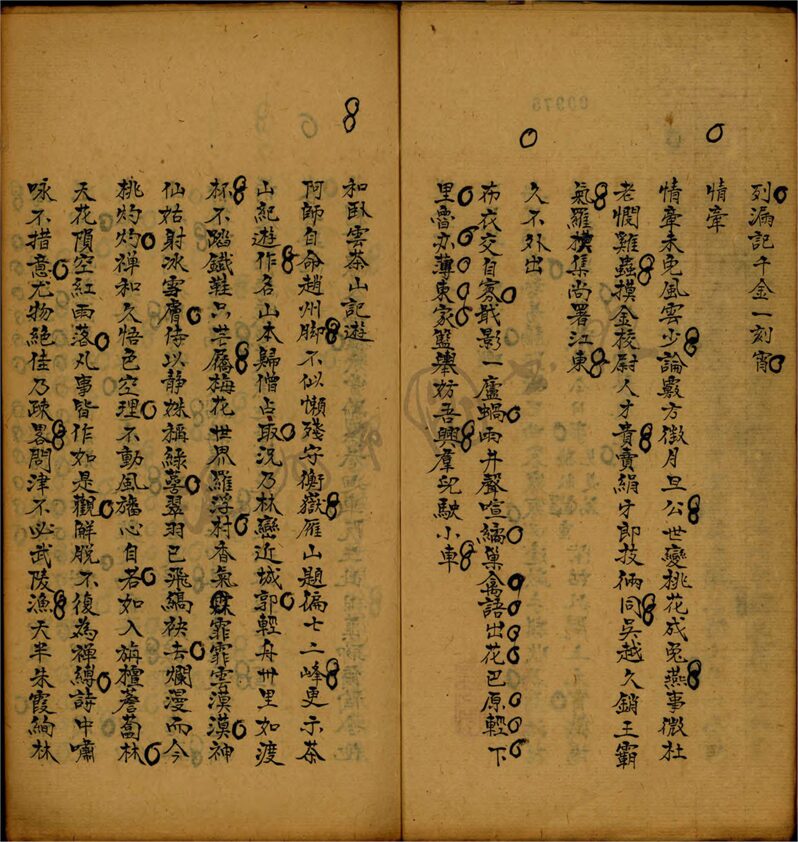 列漏記千金一刻宵
情章
情章未免風雲少論數方徴月旦公世變桃花成兔燕事微杜
老憫雞蟲摸金校尉人才貴賣絹牙郎技倆同吳越久銷王霸
氣羅橫集尚署江東
久不外出
布衣交自寡戢影一廬蝸雨井聲喧繘巢禽語出花巴原輕下
里魯亦薄東家籃轝妨吾興羣兒駛小車
和臥雲茶山記遊
阿師自命趙州脚不似懶殘守衡嶽雁山題徧七二峰更示茶
山紀遊作名山本歸僧占取況乃林巒近城郭輕舟卅里如渡
杯不踏鐵鞋只芒屩梅花世界羅浮村香氣霏霏雲漠漠神
仙姑射冰雪膚侍以静姝稱綠萼翠羽已飛縞袂去爛漫而今
桃灼灼禪和久悟色空理不動風旛心自若如入旃檀薝蔔林
天花隕空紅雨落凡事皆作如是觀解脫不復為禪縛詩中嘯
咏不措意尤物絶佳乃疎畧問津不必武陵漁天半朱霞絢林